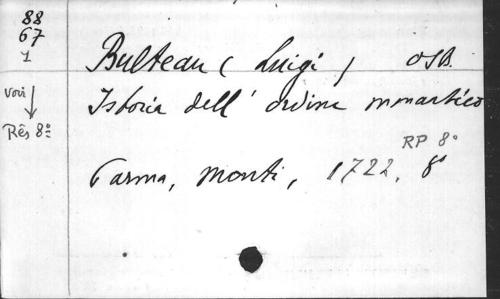 88
67
1
Bulteau (Luigi) OSB.
voir
Istoria dell' ordine monastico
Rés 8º
RP 8º
Parma, Monti, 1722, 8º